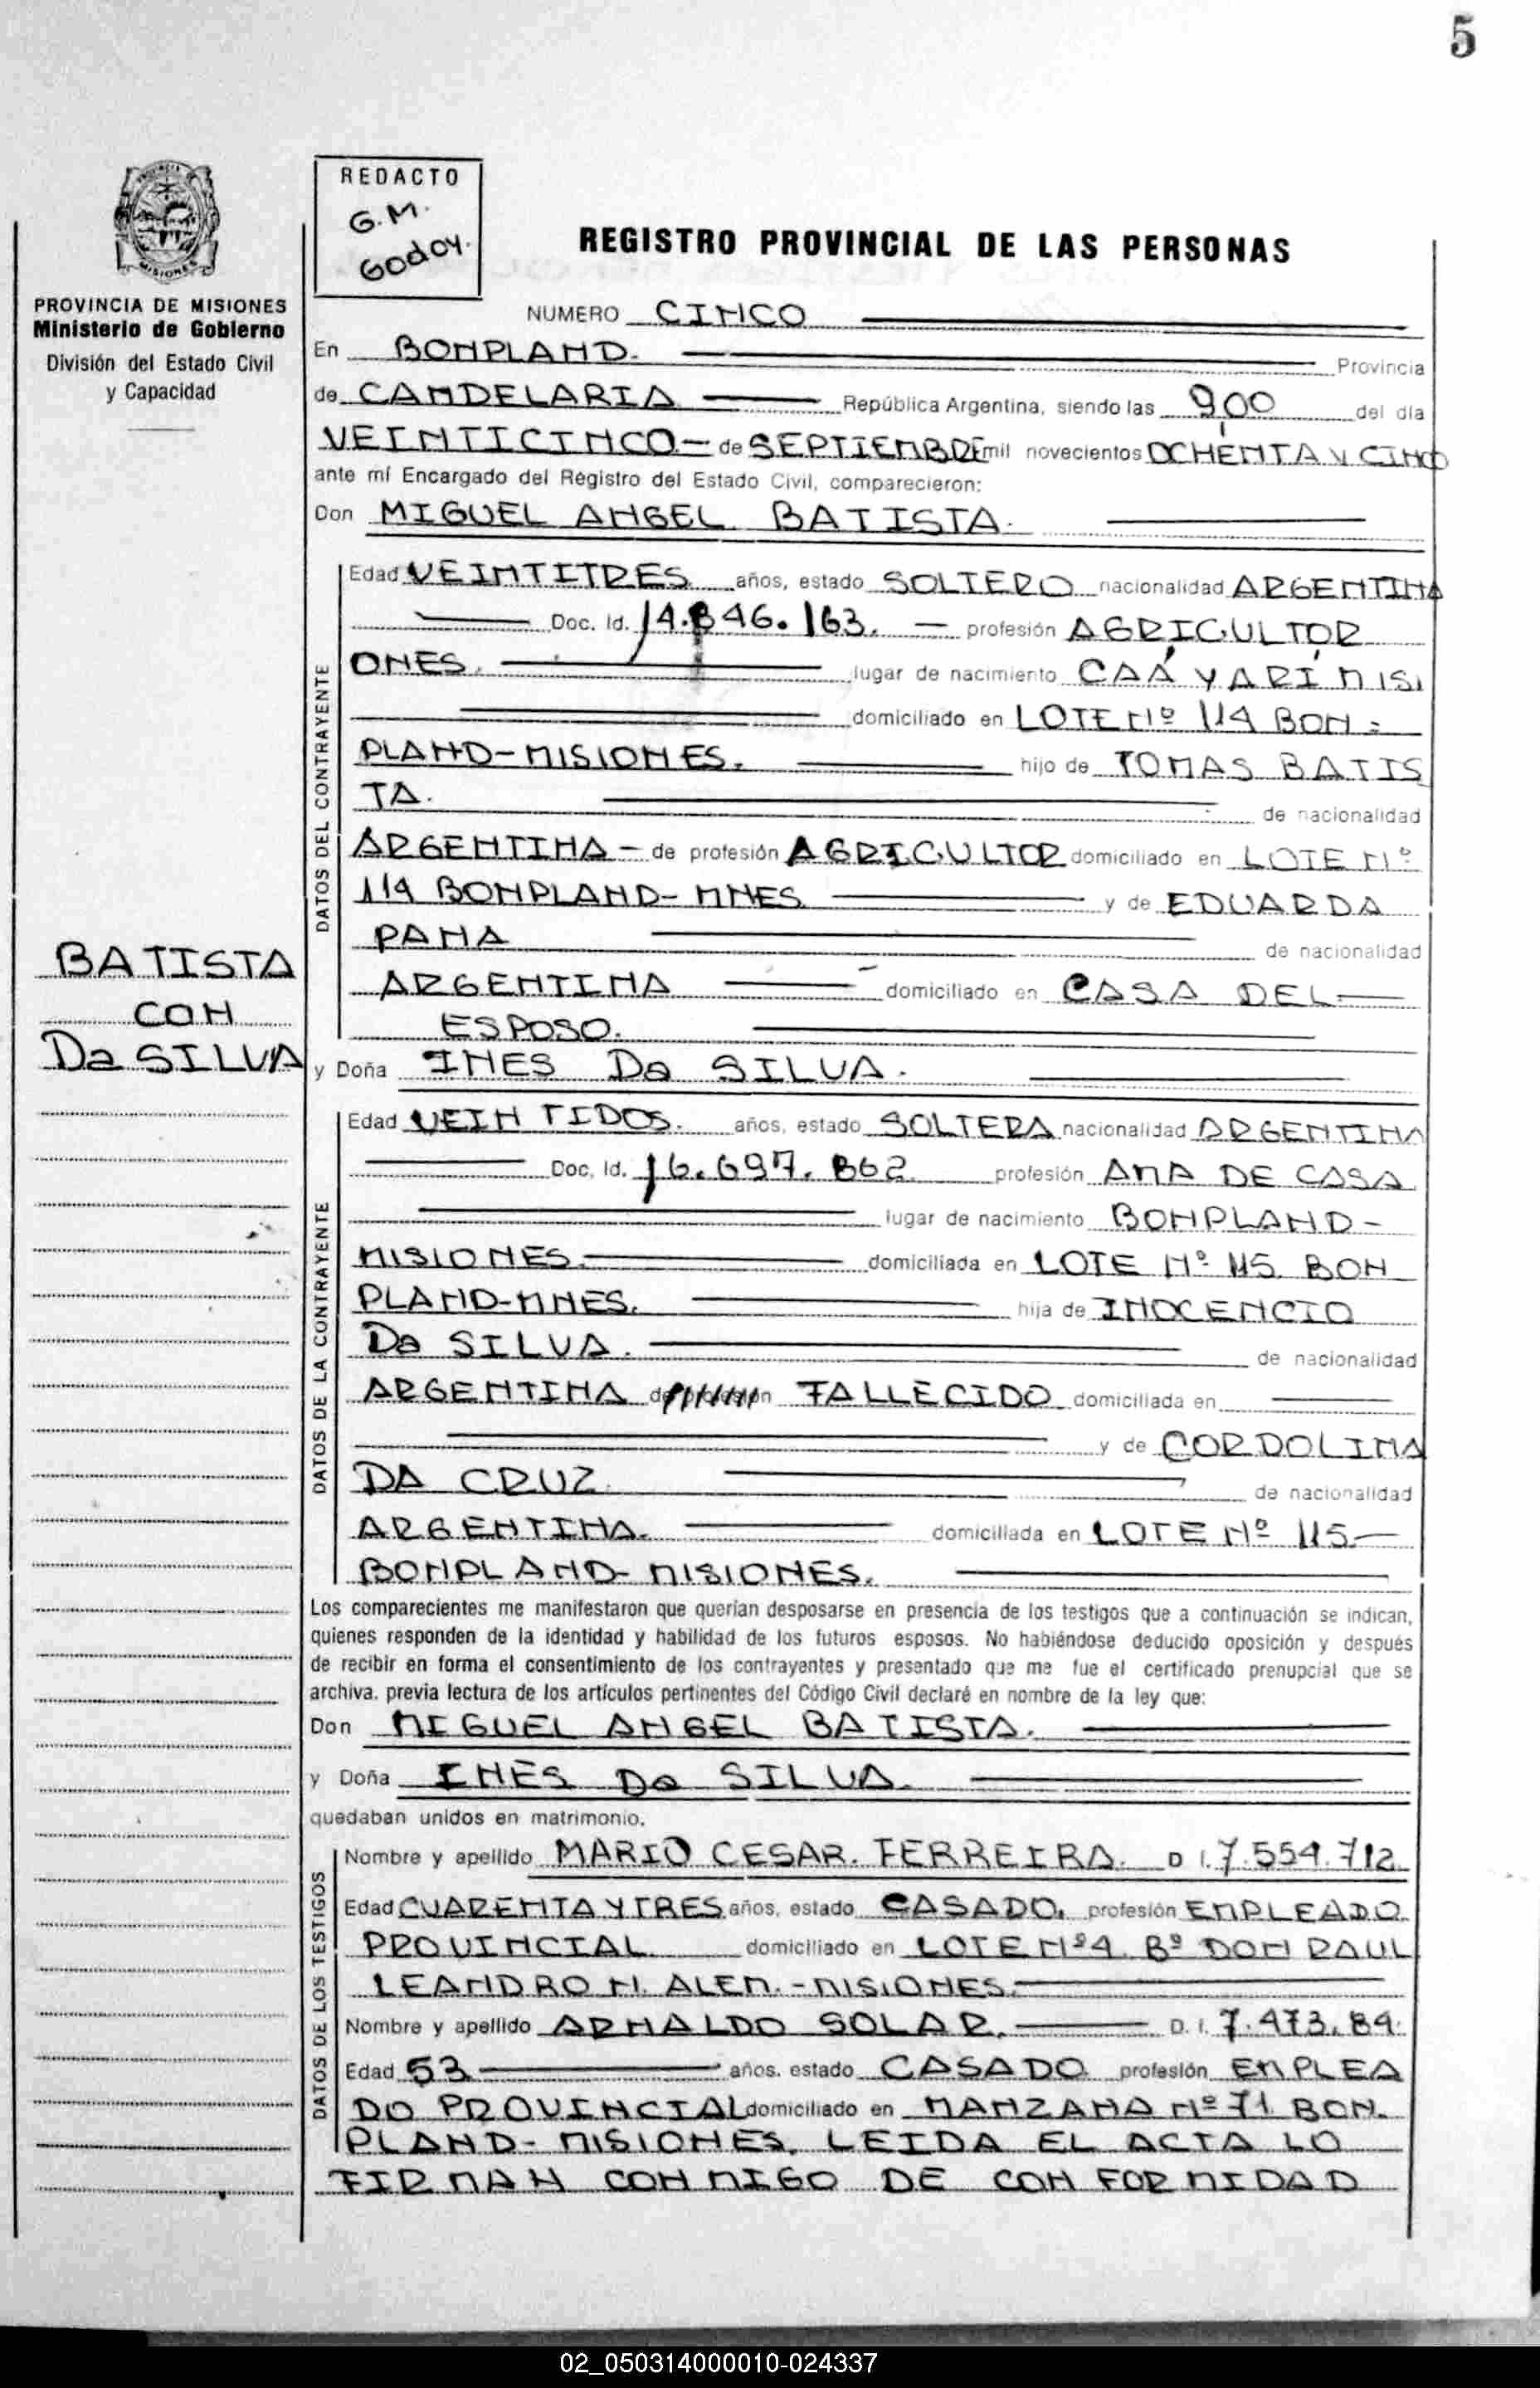 5
REDACTO
G.M.
Godoy.
REGISTRO PROVINCIAL DE LAS PERSONAS
PROVINCIA DE MISIONES
Ministerio de Gobierno
División del Estado Civil
y Capacidad
NUMERO CINCO
En BONPLAND. Provincia
de CANDELARIA República Argentina, siendo las 9,00 del día
VEINTICINCO - de SEPTIEMBRE mil novecientos OCHENTA y CINCO
ante mí Encargado del Registro del Estado Civil, comparecieron:
Don MIGUEL ANGEL BATISTA.
DATOS DEL CONTRAYENTE
Edad VEINTITRES años, estado SOLTERO nacionalidad ARGENTINA
Doc. Id. 14.846.163. - profesión AGRICULTOR
ONES. lugar de nacimiento CAÁ YARÍ MISI
domiciliado en LOTE Nº 114 BON-
PLAND-MISIONES. hijo de TOMAS BATIS
TA. de nacionalidad
ARGENTINA - de profesión AGRICULTOR domiciliado en LOTE Nº
114 BONPLAND- MNES y de EDUARDA
PANA de nacionalidad
ARGENTINA domiciliado en CASA DEL
ESPOSO.
BATISTA
CON
Da SILVA
y Doña INES Da SILVA.
DATOS DE LA CONTRAYENTE
Edad VEINTIDOS. años, estado SOLTERA nacionalidad ARGENTINA
Doc. Id. 16.697.862. profesión AMA DE CASA
lugar de nacimiento BONPLAND-
MISIONES. domiciliada en LOTE Nº 115 BON
PLAND-MNES. hija de INOCENCIO
Da SILVA. de nacionalidad
ARGENTINA de profesión FALLECIDO domiciliada en
y de CORDOLINA
DA CRUZ de nacionalidad
ARGENTINA. domiciliada en LOTE Nº 115-
BONPLAND- MISIONES.
Los comparecientes me manifestaron que querían desposarse en presencia de los testigos que a continuación se indican,
quienes responden de la identidad y habilidad de los futuros esposos. No habiéndose deducido oposición y después
de recibir en forma el consentimiento de los contrayentes y presentado que me fue el certificado prenupcial que se
archiva. previa lectura de los artículos pertinentes del Código Civil declaré en nombre de la ley que:
Don MIGUEL ANGEL BATISTA.
y Doña INES Da SILVA.
quedaban unidos en matrimonio.
DATOS DE LOS TESTIGOS
Nombre y apellido MARIO CESAR. FERREIRA. D I. 7.554.712
Edad CUARENTA Y TRES años, estado CASADO. profesión EMPLEADO
PROVINCIAL domiciliado en LOTE Nº4 Bº DON RAUL
LEANDRO N. ALEM. - MISIONES.
Nombre y apellido ARNALDO SOLAR. D. I. 7.473.84.
Edad 53 años. estado CASADO profesión EMPLEA
DO PROVINCIAL domiciliado en MANZANA Nº 71 BON.
PLAND- MISIONES. LEIDA EL ACTA LO
FIRMAN CONMIGO DE CONFORMIDAD
02_050314000010-024337